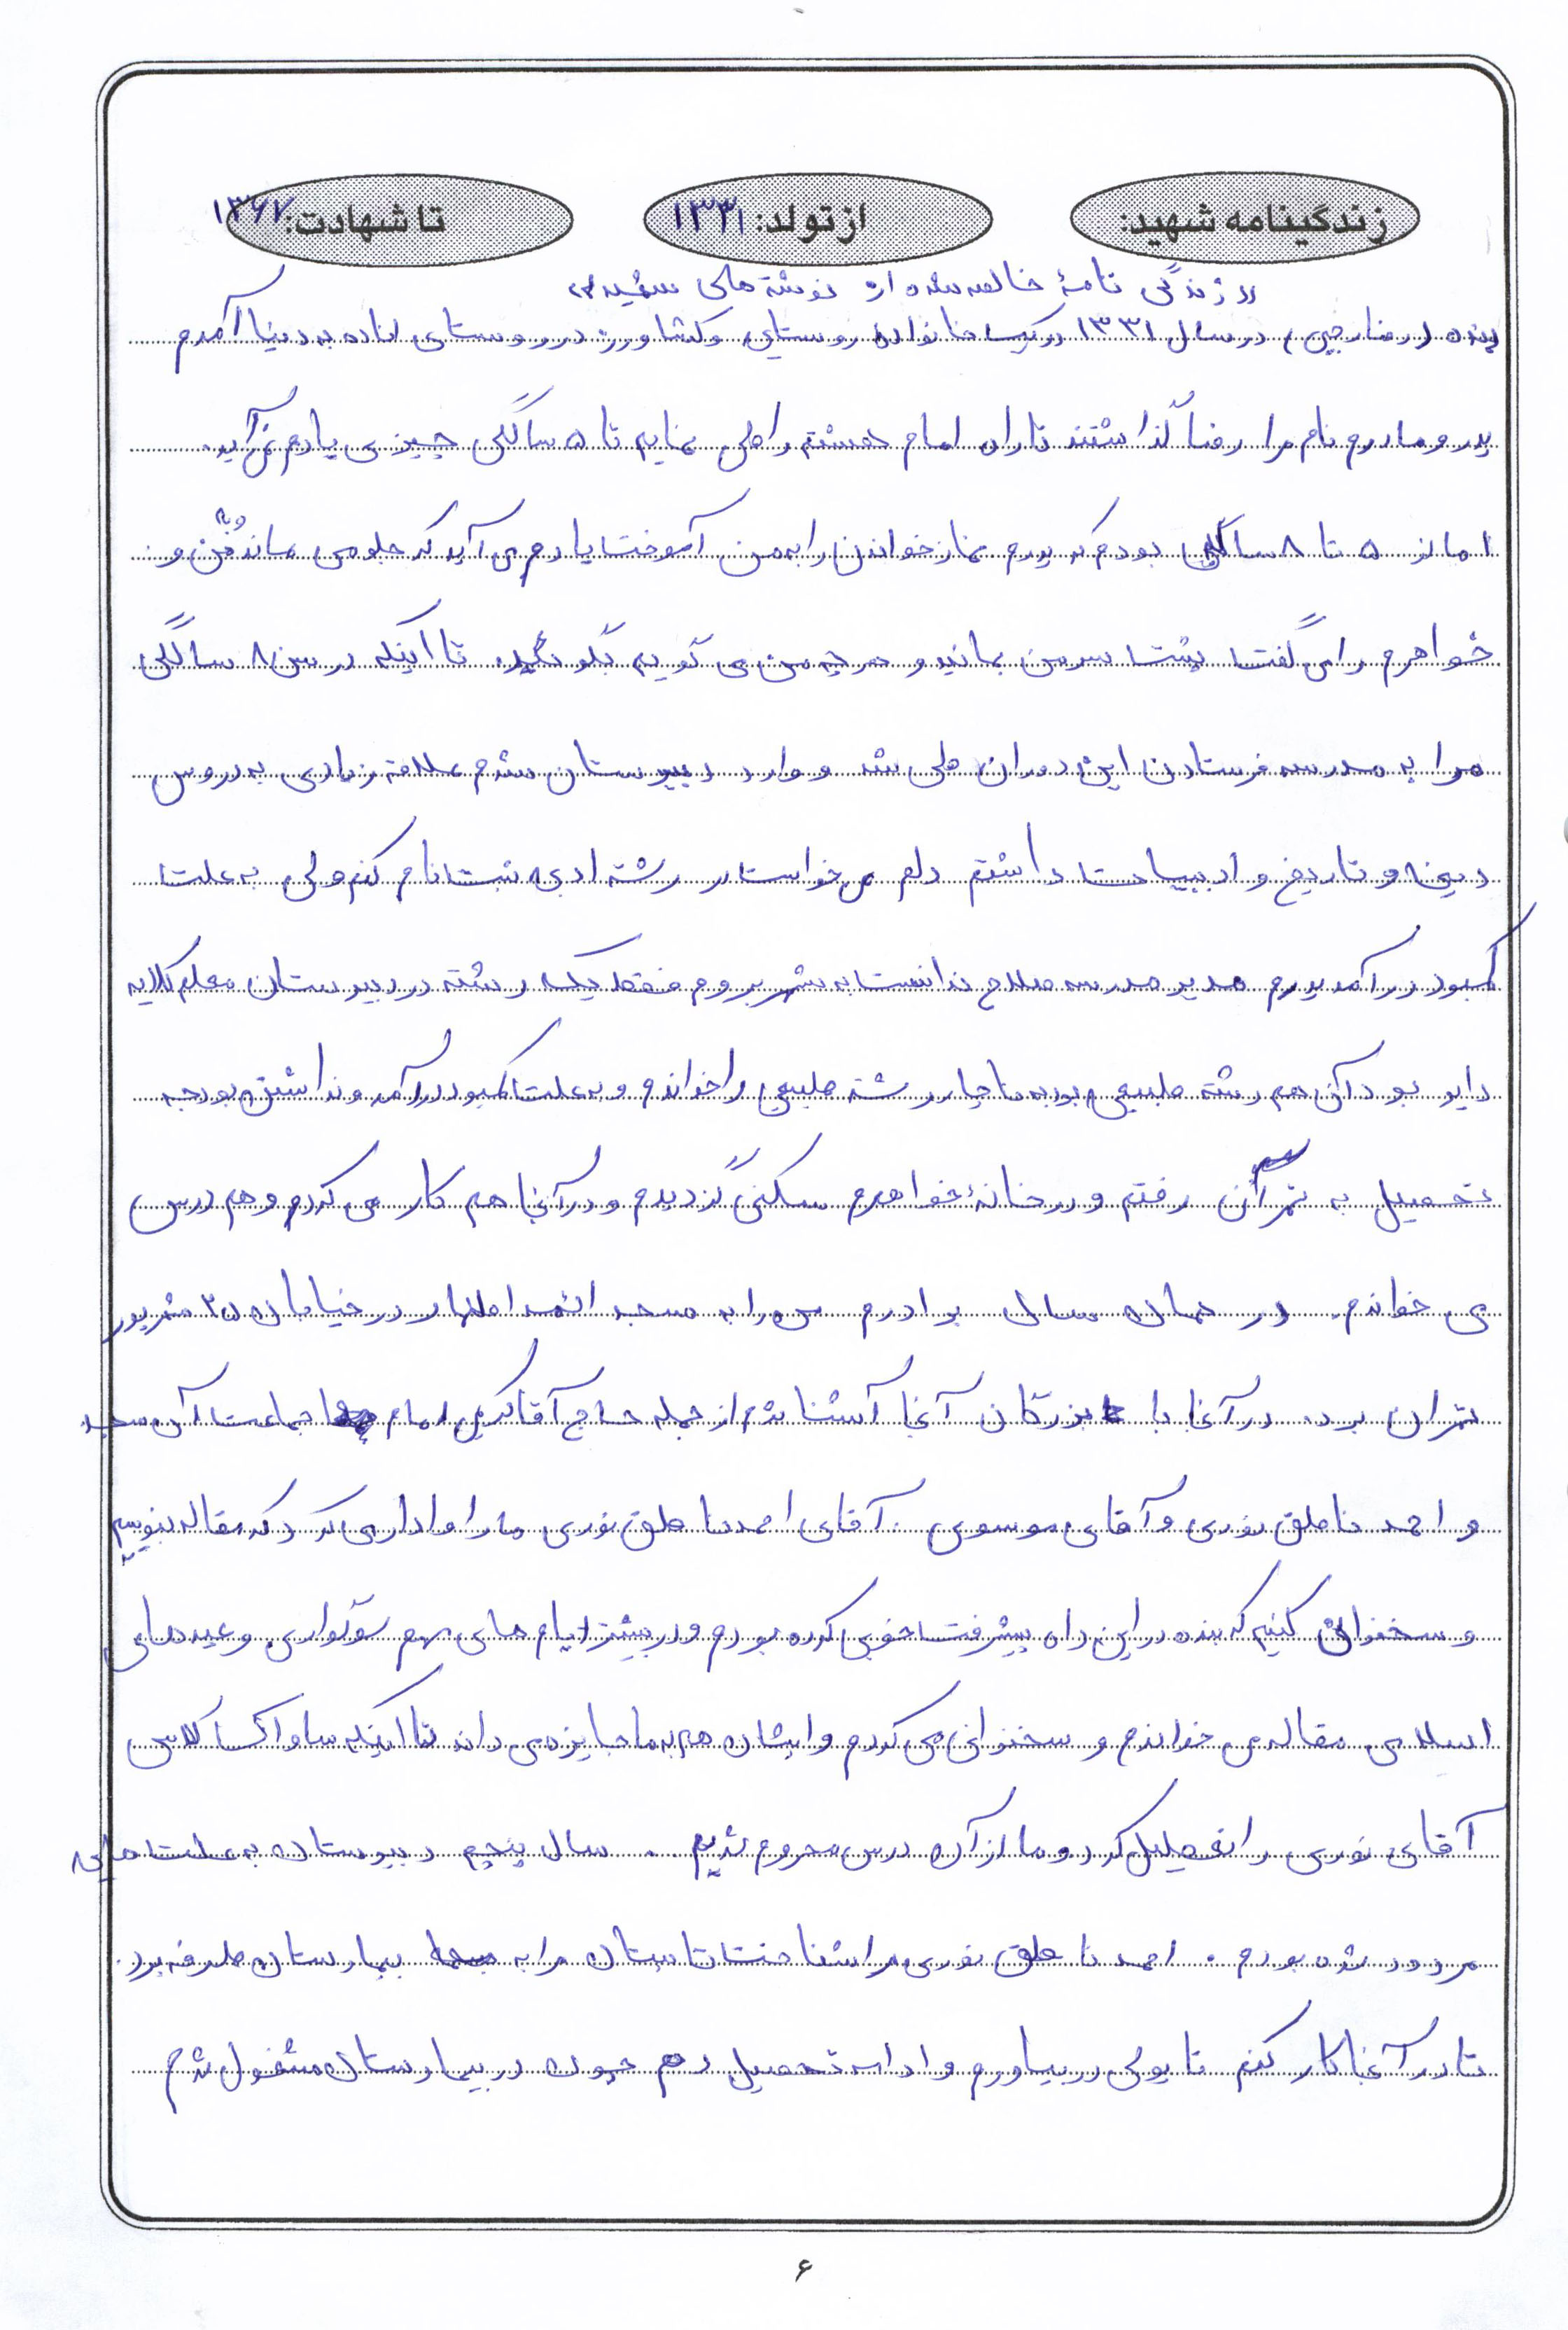 زندگینامه شهید: از تولد: ۱۳۳۱ تا شهادت: ۱۳۶۷
«زندگی نامهٔ خالصه شده از نوشته های شهید»
بنده (رضا رجبی) در سال ۱۳۳۱ در یک خانواده روستایی و کشاورز در روستای به دنیا آمدم
پدر و مادرم نام مرا رضا گذاشتند تا راه امام هشتم را طی نمایم تا ۵ سالگی چیزی یادم نمی آید.
اما از ۵ تا ۸ سالگی بودم که پدرم نماز خواندن را به من آموخت یادم می آید که جلو می ماند و من و
خواهرم را می گفت پشت سر من بمانید و هر چه من می گویم بگوئید. تا اینکه در سن ۸ سالگی
مرا به مدرسه فرستادن این دوران طی شد و وارد دبیرستان شدم علاقه زیادی به دروس
دینی و تاریخ و ادبیات داشتم دلم می خواست در رشته ادبی ثبت نام کنم ولی به علت
کمبود درآمد پدرم مدیر مدرسه صلاح ندانست به شهر بروم فقط یک رشته در دبیرستان معلم کلایه
دایر بود آن هم رشته طبیعی بود به ناچار رشته طبیعی را خواندم و به علت کمبود درآمد و نداشتن بودجه
تحصیل به تهران رفتم و در خانهٔ خواهرم سکنی گزدیدم و در آنجا هم کار می کردم و هم درس
می خواندم. در همان سال برادرم من را به مسجد ائمه اطهار در خیابان ۲۵ شهریور
تهران برد. در آنجا با بزرگان آنجا آشنا شدم از جمله حاج آقا کریمی امام جماعت آن مسجد
و احمد ناطق نوری و آقای موسوی. آقای احمد ناطق نوری ما را وادار می کرد که مقاله بنویسیم
و سخنرانی کنیم که بنده در این راه پیشرفت خوبی کرده بودم و در بیشتر ایام های مهم سوگواری و عیدهای
اسلامی مقاله می خواندم و سخنرانی می کردم و ایشان هم به ما جایزه می داند تا اینکه ساواک کلاس
آقای نوری را تعطیل کرد و ما از آن درس محروم شدیم. سال پنجم دبیرستان به علت مالی
مردود شده بودم. احمد ناطق نوری مرا شناخت تابستان مرا به بیمارستان طرفه برد.
تا در آنجا کار کنم تا پولی در بیاورم و ادامه تحصیل دهم چون در بیمارستان مشغول شدم
۶